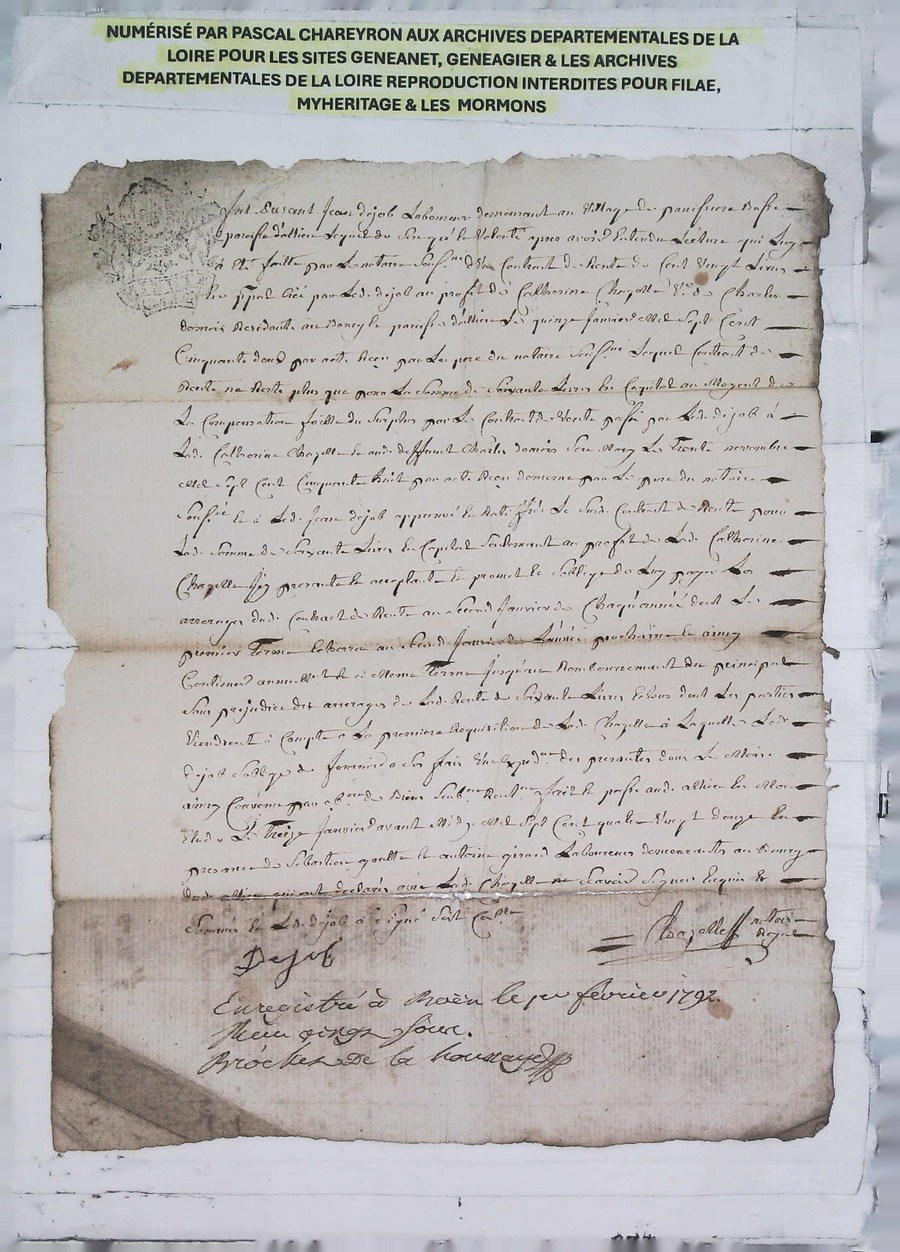 NUMÉRISÉ PAR PASCAL CHAREYRON AUX ARCHIVES DEPARTEMENTALES DE LA
LOIRE POUR LES SITES GENEANET, GENEAGIER & LES ARCHIVES
DEPARTEMENTALES DE LA LOIRE REPRODUCTION INTERDITES POUR FILAE,
MYHERITAGE & LES MORMONS
Jean dejob Laboureur demeurant au Village de
paroisse d'allieu Lequel de Son gré & Volonté apres avoir Entendu Lecture qui Luy
à été faitte par Le notaire d'Un Contrat de Rente de Cent Vingt Livres
par Led. dejob au profit de Catherine Chazelle Ve. de Charles
Residante au Bourg & paroisse d'allieu Le quinze Janvier Mil Sept Cent
Cinquante deux par acte Reçu par Le pere du notaire Lequel Contrat de
Rente ne Reste plus que pour La Somme de Soixante Livres En Capital au Moyent de
La Compensation faitte du Surplus par Le Contrat de Vente passé par Led. dejob à
Lad. Catherine Chazelle & aud. deffunt Charles Son Mary Le Trente novembre
Mil Sept Cent Cinquante huit par acte Reçu de meme par Le pere du notaire
Led. Jean dejob approuvé & Ratiffié Le Susd. Contrat de Rente pour
Lad. Somme de Soixante Livres En Capital Seulement au profit de Lad. Catherine
Chazelle Icy presante & acceptante & promet & Soblige de Luy payer Les
arrerages dud. Contract de Rente au Second Janvier de Chaque année dont Le
premier Terme au Second Janvier de L'année prochaine & ainsy
Continuer annuellemt. & à meme Terme Jusqu'au Remboursement du principal
Sans prejudice des arrerages de Lad. Rente de Soixante Livres Echus dont Les parties
Viendront à Compte a La premiere Requisition de Lad. Chazelle à Laquelle Led.
dejob Soblige de fournir à Ses frais Un Exped.on des presantes dans Le Mois
ainsy Convenu par de Biens fait & passé aud. allieu En Mon
Etude Le Treize Janvier avant Midy Mil Sept Cent quatre Vingt douze En
presence de Sebastien goutte & antoine girard Laboureurs demeurants au Bourg
dud. allieu qui ont declarés avec Lad. Chazelle ne Scavoir Signer Enquis &
Sommés & Led. dejob à Signé
Dejob
Chazelle notaire
Royal
Enregistré à Boën le 1er février 1792.
Reçu vingt Sous.
De la